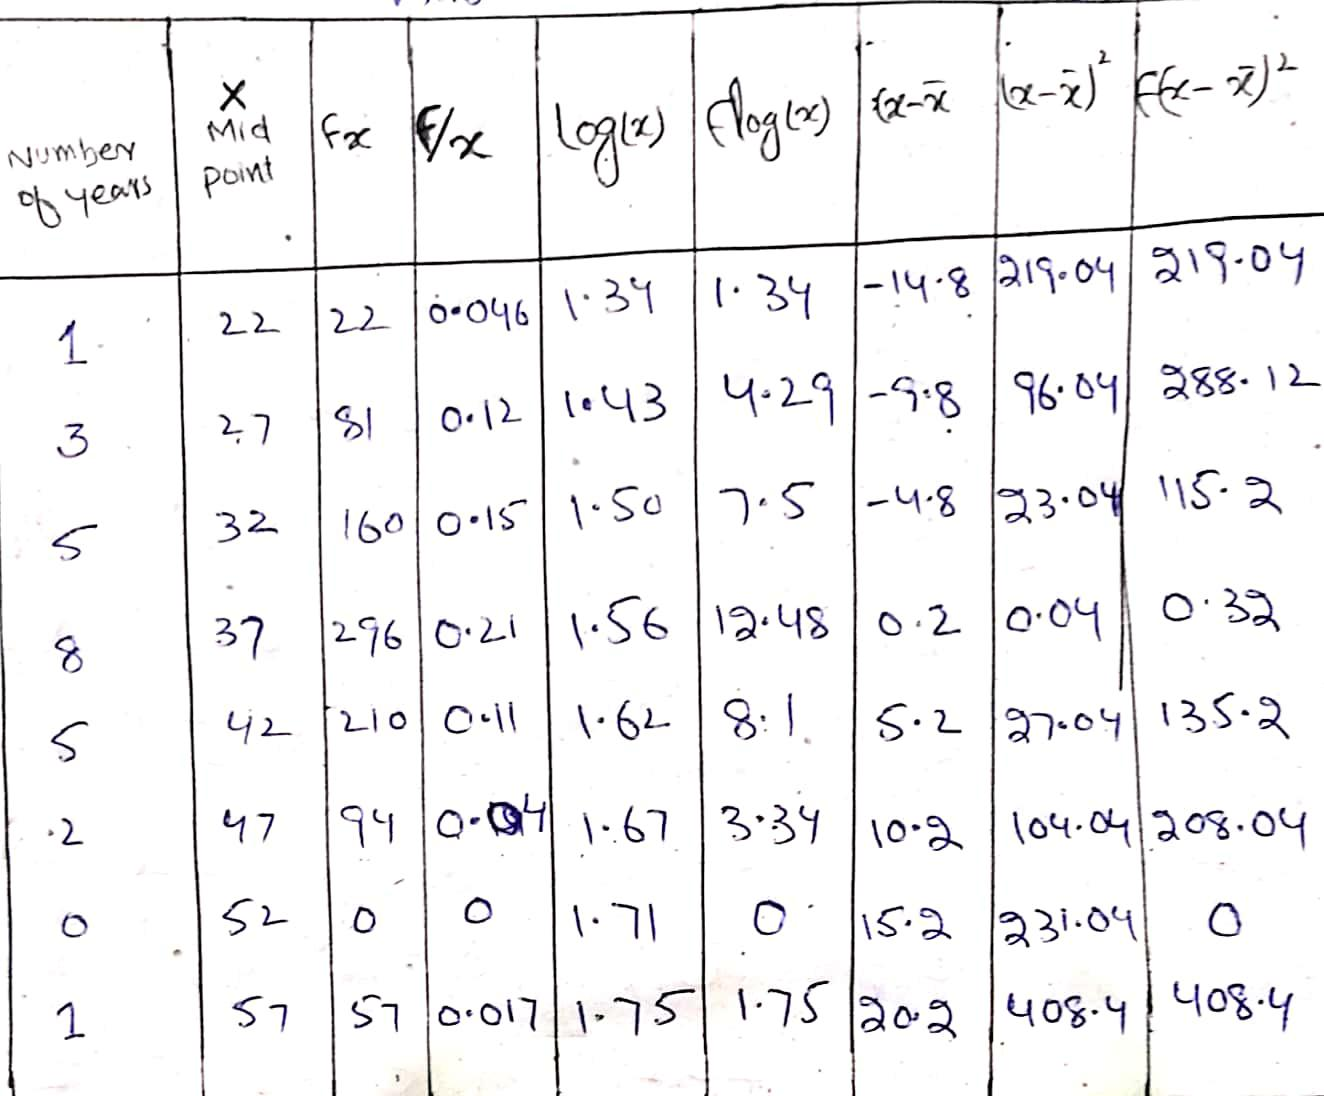 Number of years | X Mid point | fx | f/x | log(x) | flog(x) | (x-x̄ | (x-x̄)² | f(x-x̄)²
1 | 22 | 22 | 0.046 | 1.34 | 1.34 | -14.8 | 219.04 | 219.04
3 | 27 | 81 | 0.12 | 1.43 | 4.29 | -9.8 | 96.04 | 288.12
5 | 32 | 160 | 0.15 | 1.50 | 7.5 | -4.8 | 23.04 | 115.2
8 | 37 | 296 | 0.21 | 1.56 | 12.48 | 0.2 | 0.04 | 0.32
5 | 42 | 210 | 0.11 | 1.62 | 8.1 | 5.2 | 27.04 | 135.2
2 | 47 | 94 | 0.04 | 1.67 | 3.34 | 10.2 | 104.04 | 208.04
0 | 52 | 0 | 0 | 1.71 | 0 | 15.2 | 231.04 | 0
1 | 57 | 57 | 0.017 | 1.75 | 1.75 | 20.2 | 408.4 | 408.4